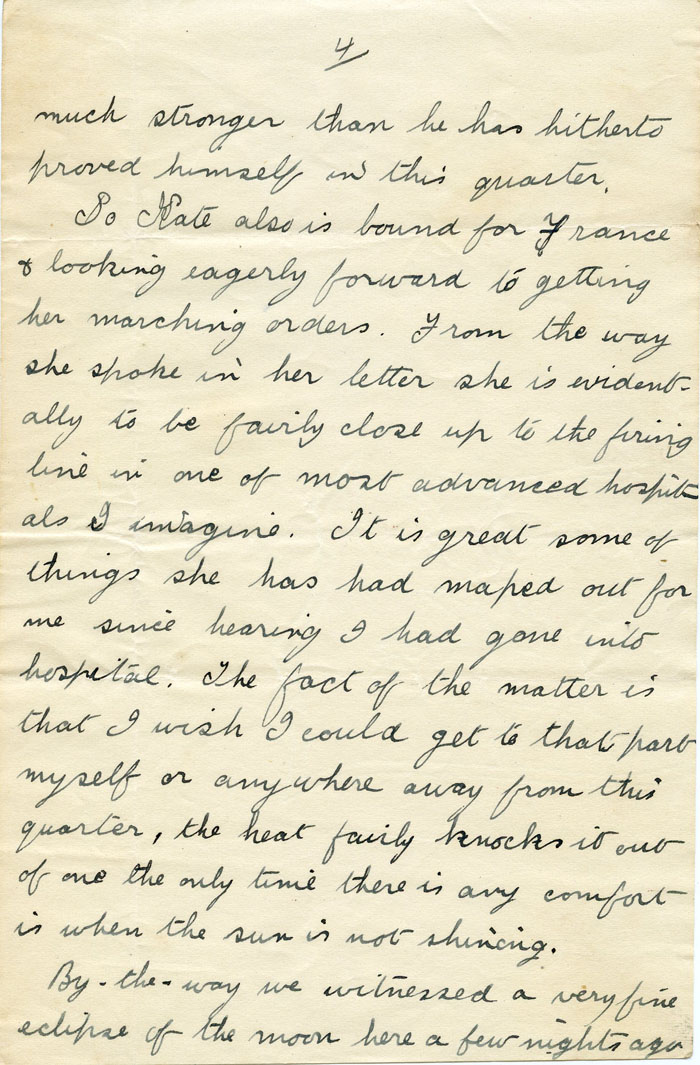 4/
much stronger than he has hitherto
proved himself in this quarter.
So Kate also is bound for France
& looking eagerly forward to getting
her marching orders. From the way
she spoke in her letter she is evident-
ally to be fairly close up to the firing
line in one of most advanced hospit-
als I imagine. It is great some of
things she has had maped out for
me since hearing I had gone into
hospital. The fact of the matter is
that I wish I could get to that part
myself or anywhere away from this
quarter, the heat fairly knocks it out
of one the only time there is any comfort
is when the sun is not shining.
By-the-way we witnessed a very fine
eclipse of the moon here a few nights ago